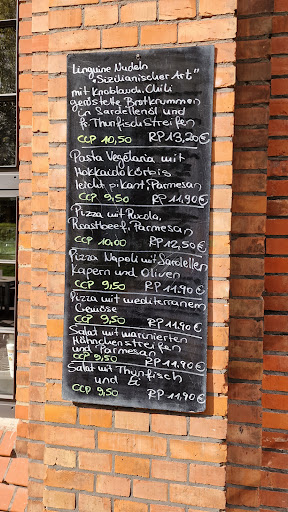 Linguine Nudeln
"Sizilianischer Art"
mit Knoblauch, Chili
geröstete Brotkrummen
in Sardellenöl und
Thunfischstreifen
CCP 10,50 RP 13,20€
Pasta Vegetaria mit
Hokkaidokürbis
leicht pikant, Parmesan
CCP 9,50 RP 11,90€
Pizza mit Rucola,
Roastbeef, Parmesan
CCP 10,00 RP 12,50€
Pizza Napoli mit Sardellen
Kapern und Oliven
CCP 9,50 RP 11.90€
Pizza mit mediterranem
Gemüse
CCP 9,50 RP 11.90€
Salat mit marinierten
Hähnchenstreifen
und Parmesan
CCP 9,50 RP 11.90€
Salat mit Thunfisch
und Ei
CCP 9,50 RP 11,90€